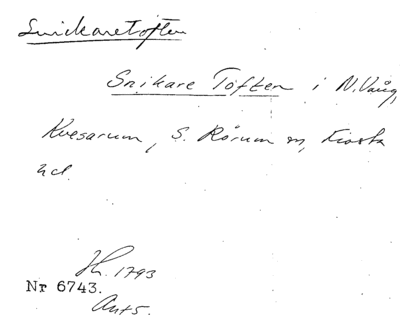 Snickaretoften
Snikare Toften i N. Vång,
Kvesarum, S. Rörum sn, Frosta
hd.
Jh. 1793
Nr 6743.
Ant5.